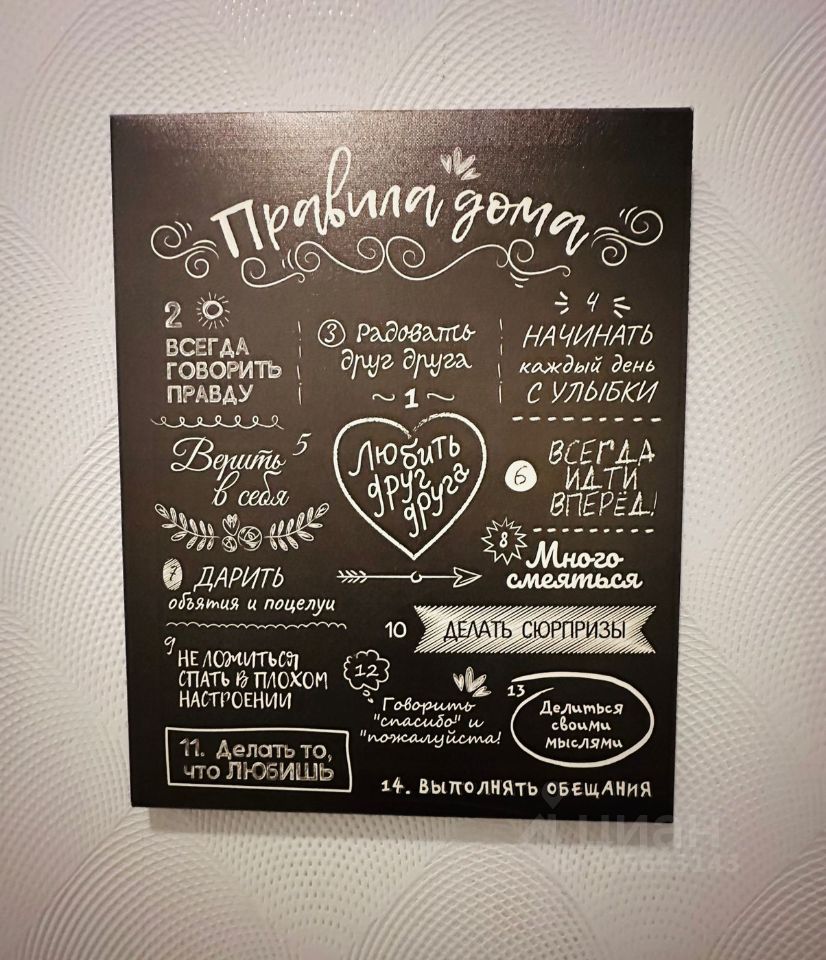 Правила дома
2
ВСЕГДА
ГОВОРИТЬ
ПРАВДУ
3 Радовать
друг друга
4
НАЧИНАТЬ
каждый день
С УЛЫБКИ
1
Любить
друг
друга
5
Верить
в себя
6
ВСЕГДА
ИДТИ
ВПЕРЁД!
7 ДАРИТЬ
объятия и поцелуи
8
Много
смеяться
9
НЕ ЛОЖИТЬСЯ
СПАТЬ В ПЛОХОМ
НАСТРОЕНИИ
10 ДЕЛАТЬ СЮРПРИЗЫ
11. Делать то,
что ЛЮБИШЬ
12
Говорить
"спасибо" и
"пожалуйста!
13
Делиться
своими
мыслями
14. ВЫПОЛНЯТЬ ОБЕЩАНИЯ
циан